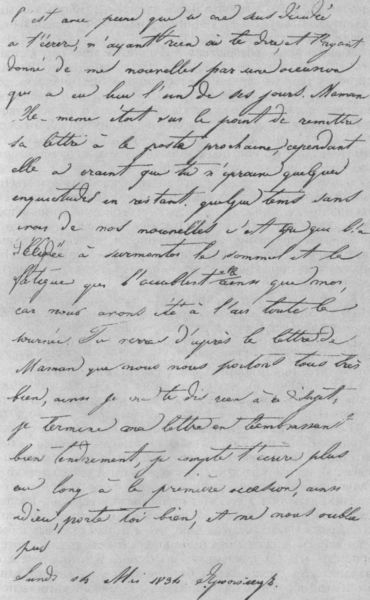 C'est avec peine que je me suis décidée
à t'écrire, n'ayant rien à te dire, et t'ayant
donné de mes nouvelles par une occasion
qui a eu lieu l'un de ses jours. Maman
elle-même était sur le point de remettre
sa lettre à la poste prochaine, cependant
elle a craint que tu n'éprouve quelques
inquiétudes en restant quelque tems sans
avoir de nos nouvelles c'est ce qui l'a
décidée à surmonter le sommeil et la
fatigue qui l'accablent ainsi que moi,
car nous avons été à l'air toute la
journée. Tu verras d'après la lettre de
Maman que nous nous portons tous très
bien, ainsi je ne te dis rien à ce sujet,
je termine ma lettre en t'embrassant
bien tendrement, je compte t'écrire plus
au long à la première occasion, ainsi
adieu, porte toi bien, et ne nous oublie
pas
Lundi 14 Mai 1834